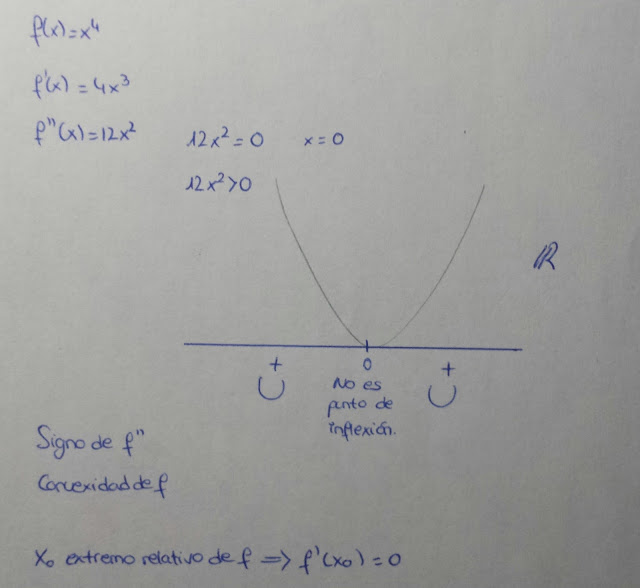 f(x)=x⁴
f'(x)=4x³
f''(x)=12x² 12x²=0 x=0
12x²>0
ℝ
+ 0 +
∪ No es ∪
punto de
inflexión.
Signo de f''
Convexidad de f
X₀ extremo relativo de f ⇒ f'(x₀)=0